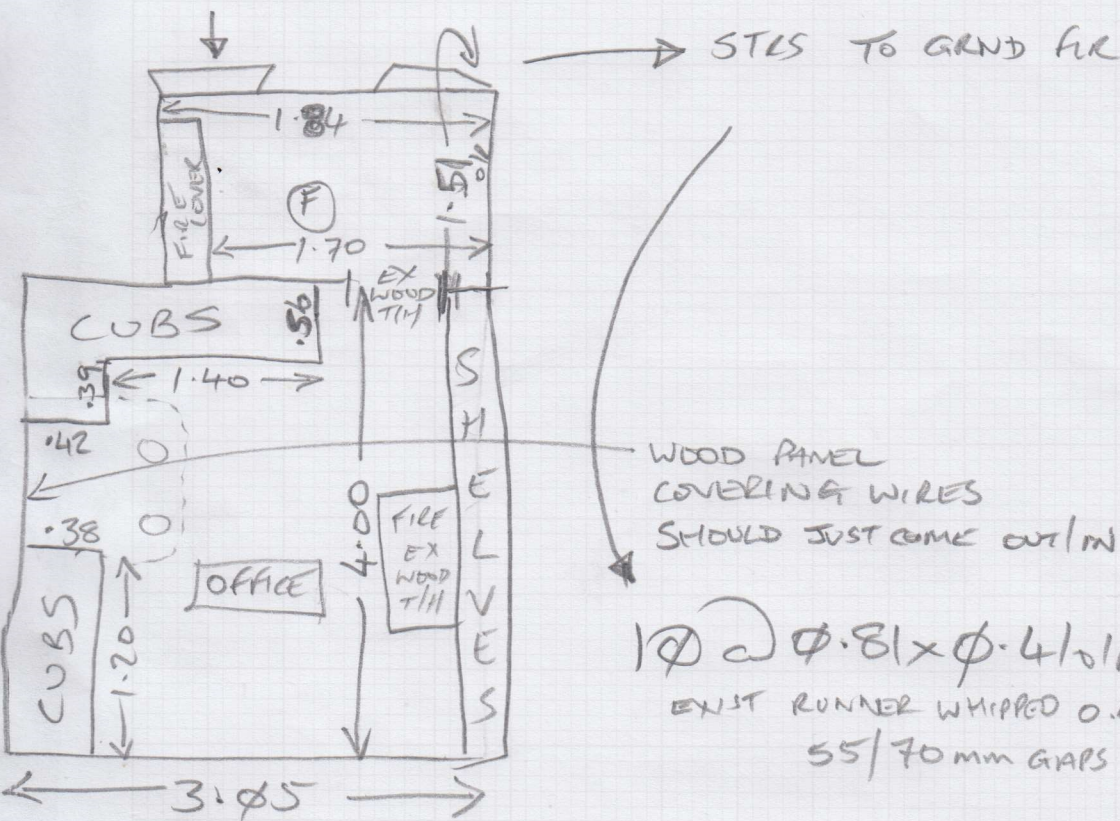 STRS TO GRND FLR
1.84
FIRE
COVER
F
1.51
1.70
EX
WOOD
T/H
CUBS
.56
.39
1.40
.42
SHELVES
WOOD PANEL
COVERING WIRES
SHOULD JUST COME OUT/IN
.38
4.00
FIRE
EX
WOOD
T/H
OFFICE
CUBS
1.20
1Ø @ Ø.81 x Ø.41
EXIST RUNNER WHIPPED
55/70mm GAPS
3.Ø5